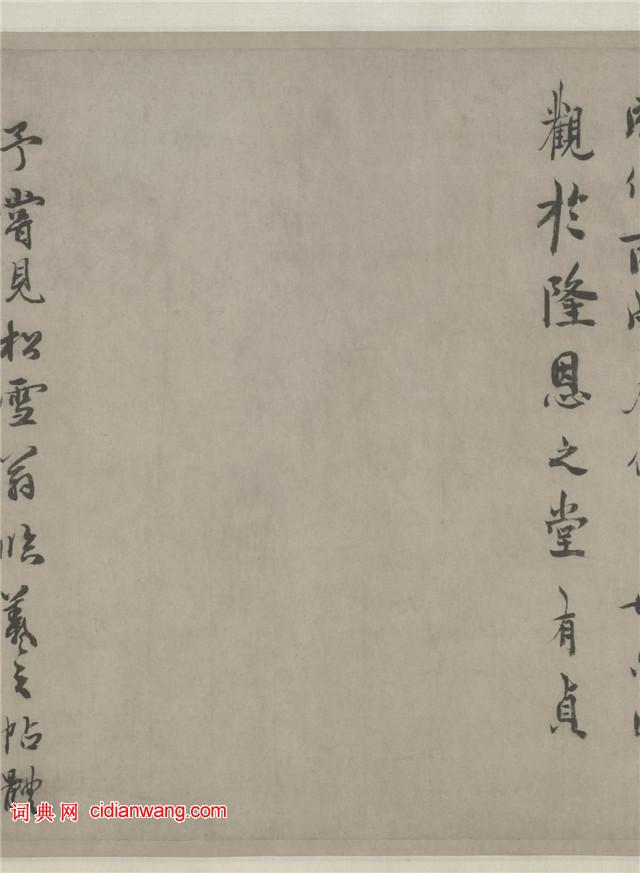 觀於隆恩之堂有貞
予嘗見松雪翁臨羲之帖體
词典网 cidianwang.com